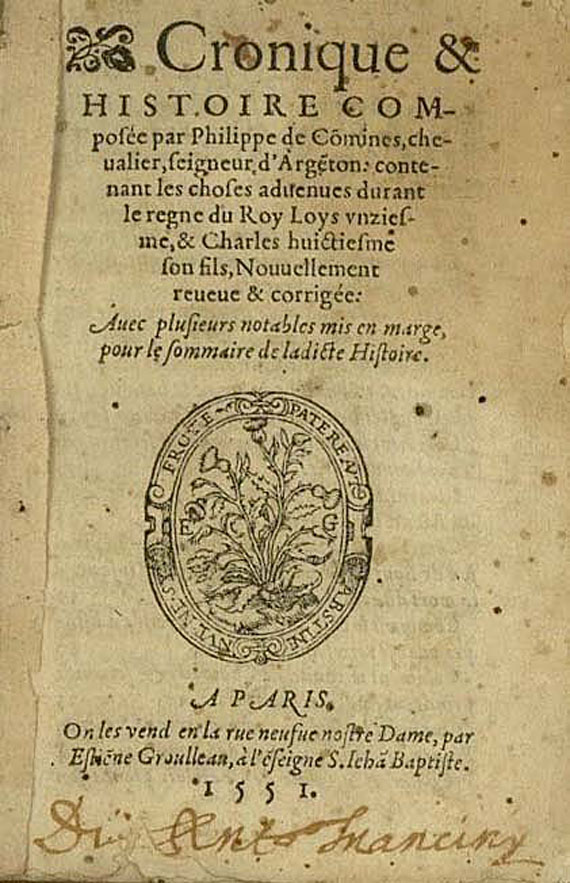 Cronique &
HISTOIRE COM-
posée par Philippe de Cõmines, che-
ualier, seigneur d'Argẽton: conte-
nant les choses aduenues durant
le regne du Roy Loys vnzies-
me, & Charles huictiesme
son fils, Nouuellement
reueue & corrigée:
Auec plusieurs notables mis en marge,
pour le sommaire de ladicte Histoire.
PATERE AVT
ABSTINE
NVL NE SY
FROTE
E G
A PARIS.
On les vend en la rue neufue nostre Dame, par
Estiẽne Groulleau, à l'ẽseigne S. Iehã Baptiste.
1551.
Mancini